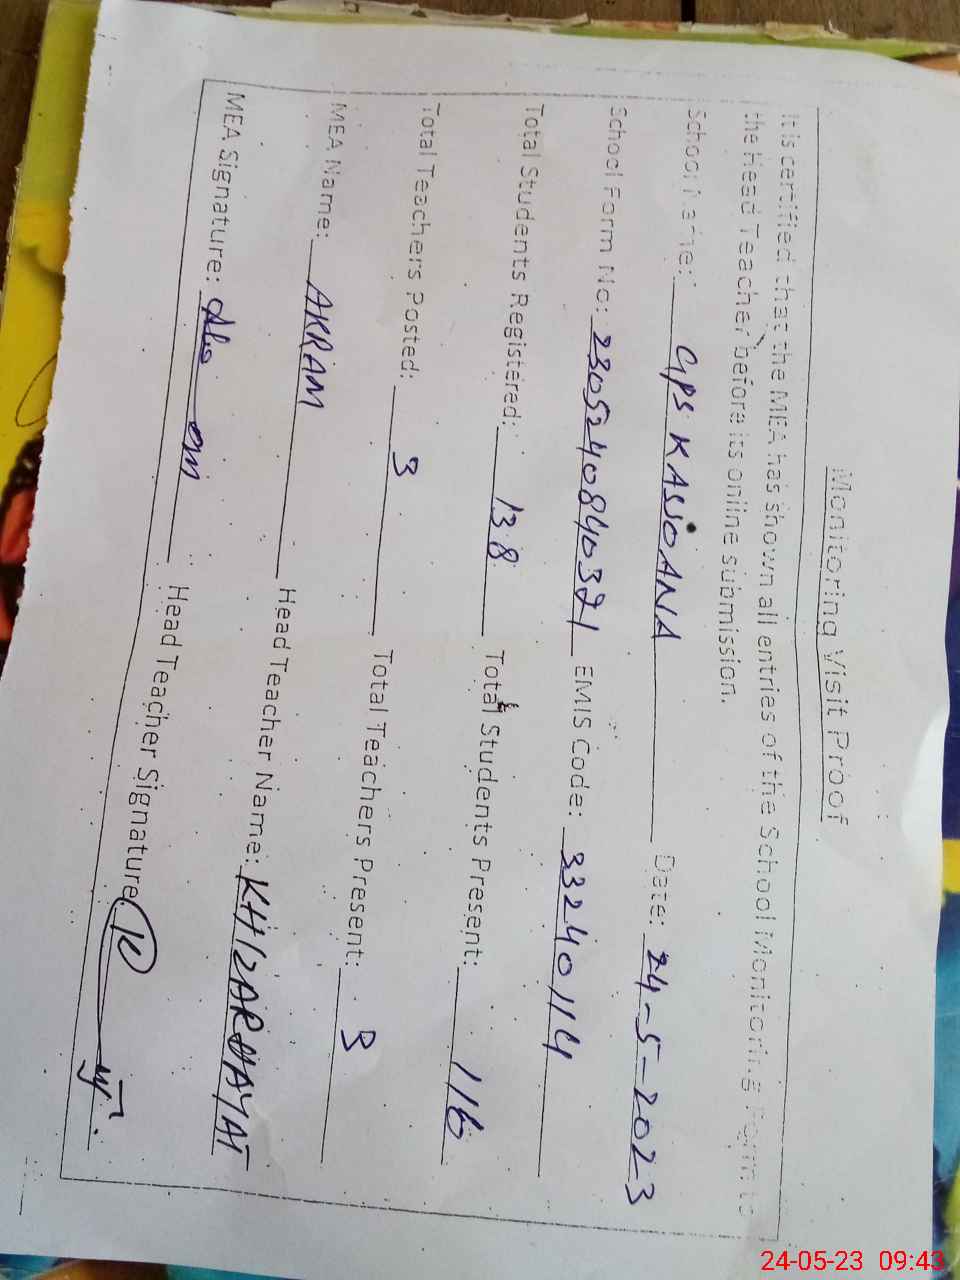 Monitoring Visit Proof
It is certified that the MEA has shown all entries of the School Monitoring Form to
the Head Teacher before its online submission.
School Name: GPS KASSOANA Date: 24-5-2023
School Form No: 23052408403 EMIS Code: 33240114
Total Students Registered: 138 Total Students Present: 116
Total Teachers Posted: 3 Total Teachers Present: 3
MEA Name: AKRAM Head Teacher Name: KHIZAR HAYAT
MEA Signature: Head Teacher Signature
24-05-23 09:43